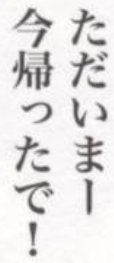 ただいまー
今帰ったで！